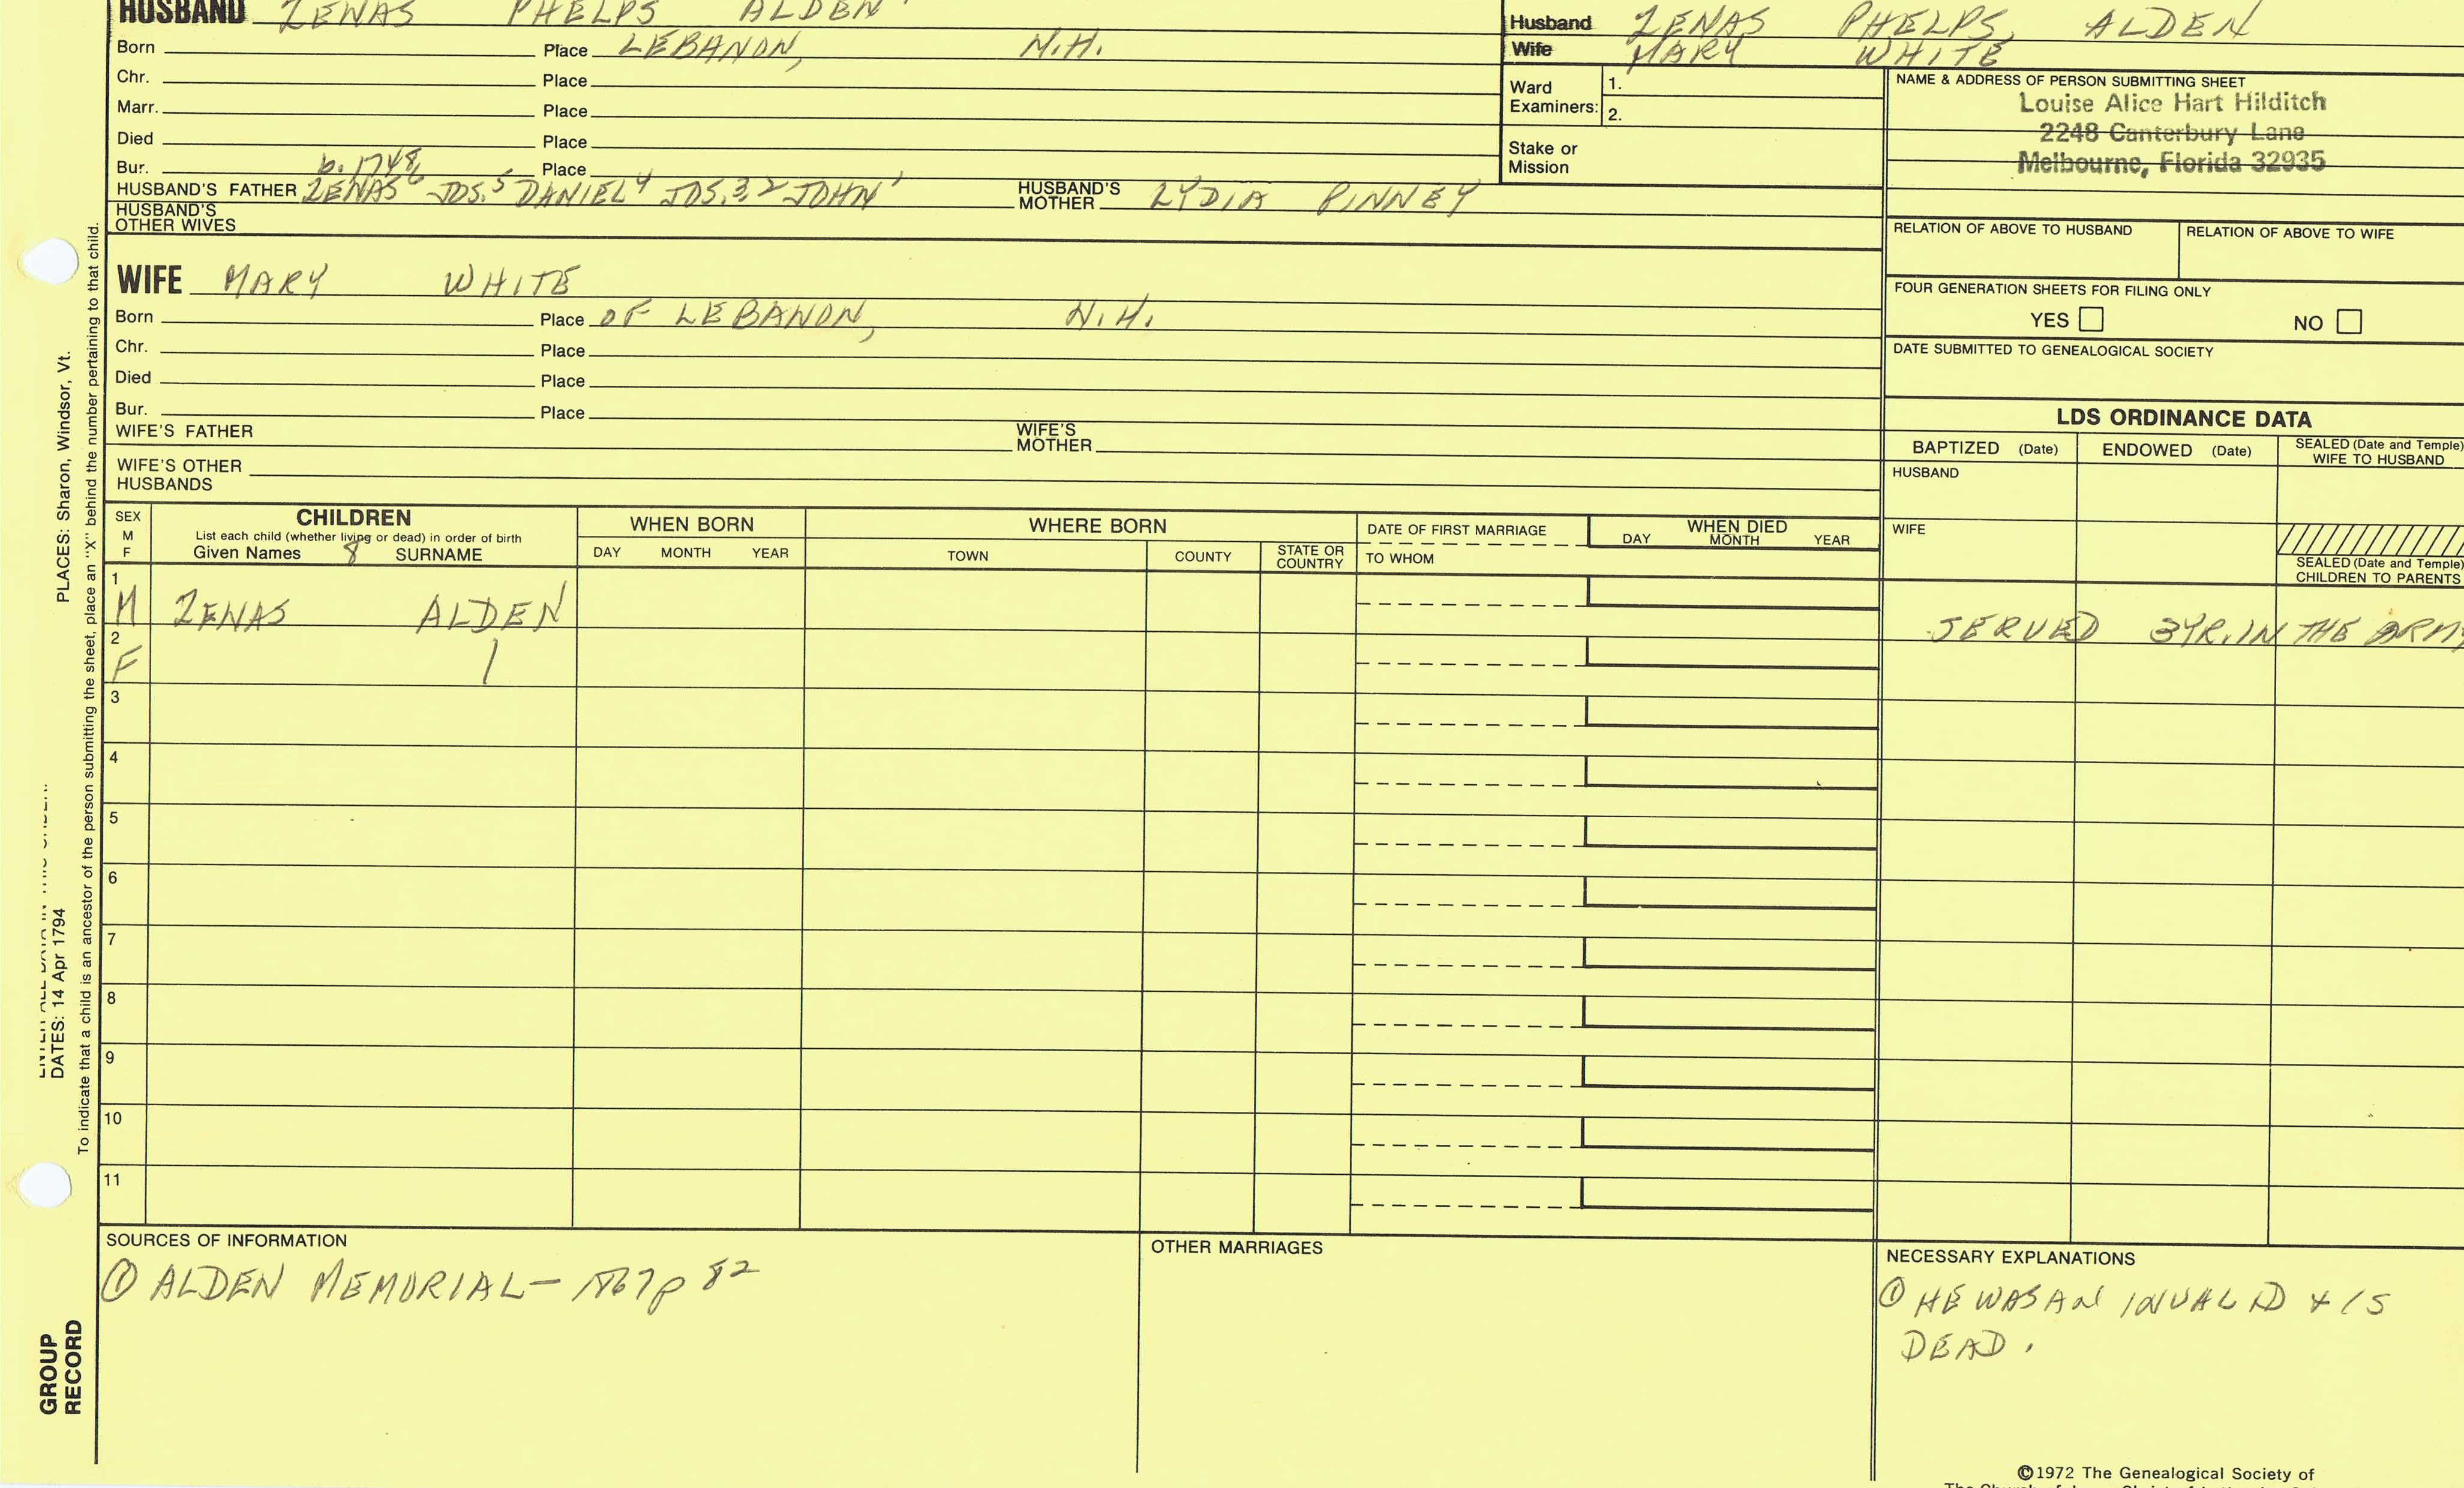 HUSBAND ZENAS PHELPS ALDEN
Born Place LEBANON, N.H.
Chr. Place
Marr. Place
Died Place
Bur. Place
b. 1748
HUSBAND'S FATHER ZENAS6 JOS.5 DANIEL4 JOS.3,2 JOHN1 HUSBAND'S MOTHER LYDIA PINNEY
HUSBAND'S
OTHER WIVES
WIFE MARY WHITE
Born Place OF LEBANON, N.H.
Chr. Place
Died Place
Bur. Place
WIFE'S FATHER WIFE'S MOTHER
WIFE'S OTHER
HUSBANDS
Husband ZENAS PHELPS, ALDEN
Wife MARY WHITE
Ward
Examiners: 1.
2.
Stake or
Mission
NAME & ADDRESS OF PERSON SUBMITTING SHEET
Louise Alice Hart Hilditch
2248 Canterbury Lane
Melbourne, Florida 32935
RELATION OF ABOVE TO HUSBAND RELATION OF ABOVE TO WIFE
FOUR GENERATION SHEETS FOR FILING ONLY
YES NO
DATE SUBMITTED TO GENEALOGICAL SOCIETY
LDS ORDINANCE DATA
BAPTIZED (Date) ENDOWED (Date) SEALED (Date and Temple)
WIFE TO HUSBAND
HUSBAND
WIFE
SEALED (Date and Temple)
CHILDREN TO PARENTS
SEX
M
F
CHILDREN
List each child (whether living or dead) in order of birth
Given Names 8 SURNAME
WHEN BORN
DAY MONTH YEAR
WHERE BORN
TOWN COUNTY STATE OR COUNTRY
DATE OF FIRST MARRIAGE
TO WHOM
WHEN DIED
DAY MONTH YEAR
1
M ZENAS ALDEN
SERVED 3YR. IN THE ARMY
2
F
3
4
5
6
7
8
9
10
11
SOURCES OF INFORMATION
① ALDEN MEMORIAL - 1867 p 82
OTHER MARRIAGES
NECESSARY EXPLANATIONS
① HE WAS AN INVALID + IS
DEAD.
©1972 The Genealogical Society of
PLACES: Sharon, Windsor, Vt.
DATES: 14 Apr 1794
To indicate that a child is an ancestor of the person submitting the sheet, place an "X" behind the number pertaining to that child.
GROUP
RECORD